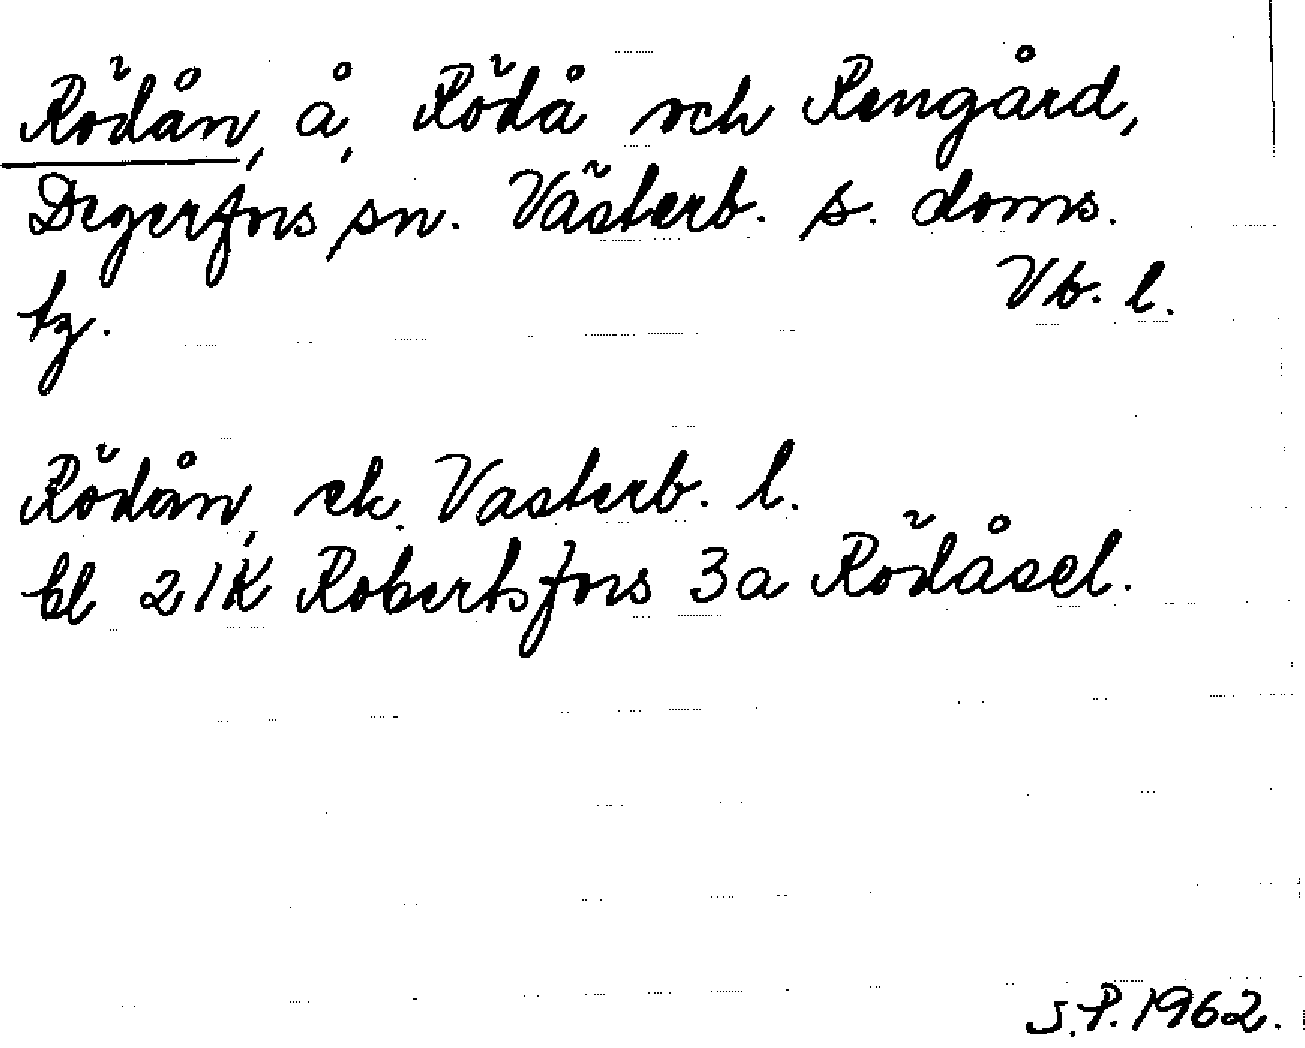 Rödån, å, Rödå och Rengård,
Degerfors sn. Västerb. s. doms.
tg. Vb. l.
Rödån, ek. Västerb. l.
bl 21K Robertsfors 3a Rödåsel.
S.P. 1962.